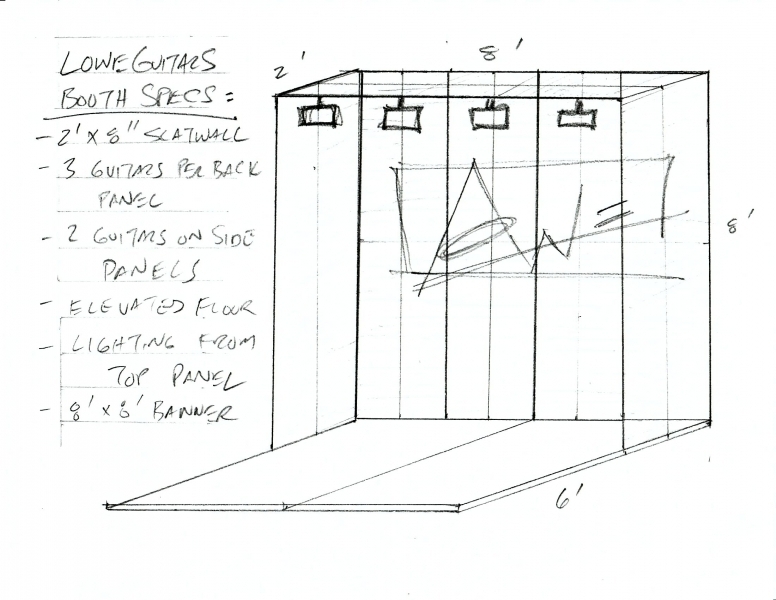 LOWE GUITARS
BOOTH SPECS =
- 2' x 8" SLATWALL
- 3 GUITARS PER BACK
PANEL
- 2 GUITARS ON SIDE
PANELS
- ELEVATED FLOOR
- LIGHTING FROM
TOP PANEL
- 8' x 8' BANNER
2'
8'
8'
6'